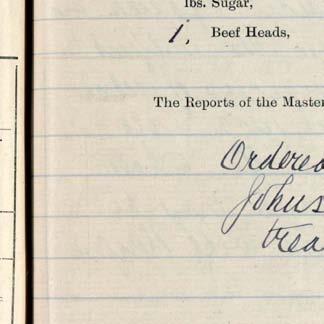 lbs. Sugar,
1, Beef Heads,
The Reports of the Master
Ordered
Johns
trea